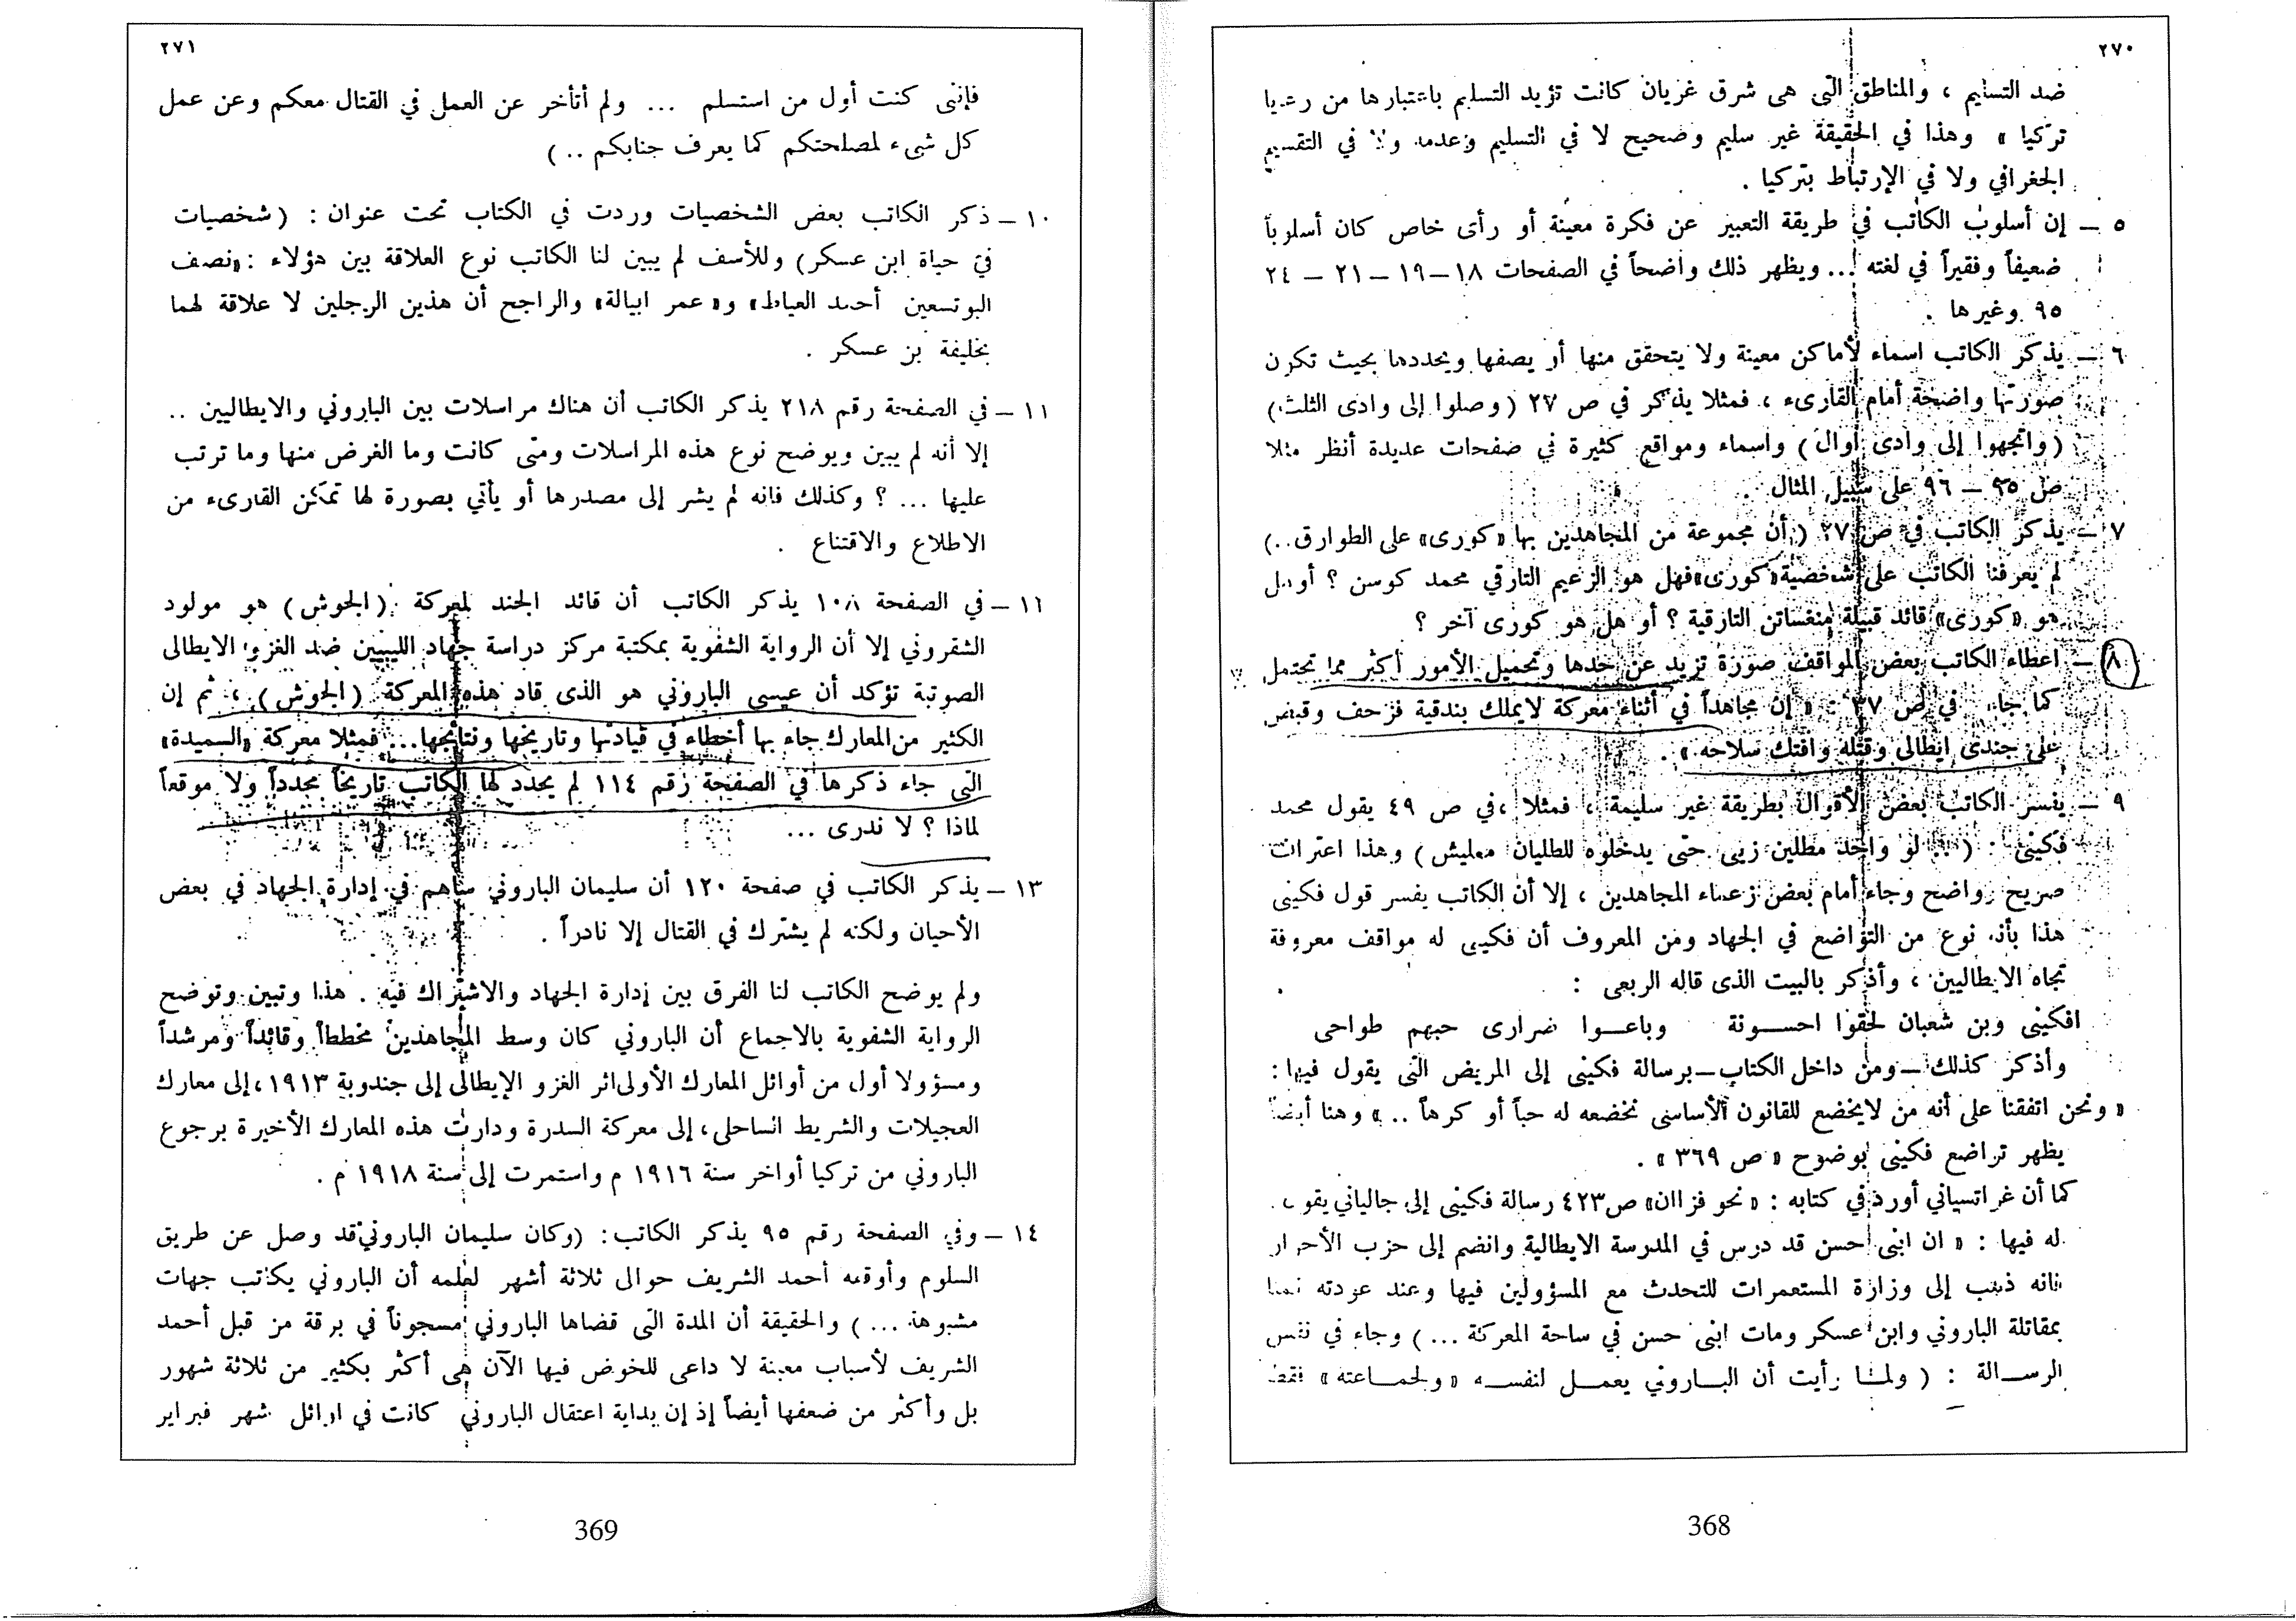 ٢٧٠
ضد التسليم ، والمناطق التى هى شرق غريان كانت تؤيد التسليم باعتبارها من رعايا
تركيا » وهذا في الحقيقة غير سليم وضحيح لا في التسليم وعدمه ولا في التقسيم
الجغرافي ولا في الإرتباط بتركيا .
٥ – إن أسلوب الكاتب في طريقة التعبير عن فكرة معينة أو رأى خاص كان أسلوباً
ضعيفاً وفقيراً في لغته ... ويظهر ذلك واضحاً في الصفحات ١٨–١٩–٢١ – ٢٤
٩٥ وغيرها .
٦ – يذكر الكاتب اسماء لأماكن معينة ولا يتحقق منها أو يصفها ويحددها بحيث تكون
صورتها واضحة أمام القارىء ، فمثلا يذكر في ص ٢٧ (وصلوا إلى وادى الثلث)
(واتجهوا إلى وادى أوال) واسماء ومواقع كثيرة في صفحات عديدة أنظر مثلا
ص ٩٥ – ٩٦ على سبيل المثال .
٧ – يذكر الكاتب في ص ٢٧ (أن مجموعة من المجاهدين بها «كورى» على الطوارق..)
لم يعرفنا الكاتب على شخصية «كورى» فهل هو الزعيم التارقي محمد كوسن ؟ أو هل
هو «كورى» قائد قبيلة منغساتن التارقية ؟ أو هل هو كورى آخر ؟
٨ – اعطاء الكاتب بعض المواقف صورة تزيد عن حدها وتحميل الأمور أكثر مما تحتمل
كما جاء في ص ٣٧ : « إن مجاهداً في أثناء معركة لايملك بندقية فزحف وقبض
على جندى ايطالى وقتله وافتك سلاحه » .
٩ – يفسر الكاتب بعض الأقوال بطريقة غير سليمة ، فمثلا ،في ص ٤٩ يقول محمد
فكينى : ( .. لو واحد مطلين زيى حتى يدخلوه للطليان معليش) وهذا اعتراف
صريح واضح وجاء أمام بعض زعماء المجاهدين ، إلا أن الكاتب يفسر قول فكينى
هذا بأنه نوع من التواضع في الجهاد ومن المعروف أن فكينى له مواقف معروفة
تجاه الايطاليين ، وأذكر بالبيت الذى قاله الربعى :
افكينى وبن شعبان لحقوا احســونة وباعــوا ضرارى حبهم طواحى
وأذكر كذلك – ومن داخل الكتاب – برسالة فكينى إلى المريض التى يقول فيها :
« ونحن اتفقنا على أنه من لايخضع للقانون الأساسى نخضعه له حباً أو كرهاً .. » وهنا أيضاً
يظهر تواضع فكينى بوضوح « ص ٣٦٩ » .
كما أن غراتسياني أورد في كتابه : « نحو فزاان» ص ٤٢٣ رسالة فكينى إلى جالياني يقول
له فيها : « ان ابنى حسن قد درس في المدرسة الايطالية وانضم إلى حزب الأحرار
فانه ذهب إلى وزارة المستعمرات للتحدث مع المسؤولين فيها وعند عودته قمنا
بمقاتلة الباروني وابن عسكر ومات ابنى حسن في ساحة المعركة ... ) وجاء في نفس
الرســالة : ( ولمــا رأيت أن البــاروني يعمــل لنفســه « ولجمــاعته » فقط
368
٢٧١
فإننى كنت أول من استسلم ... ولم أتأخر عن العمل في القتال معكم وعن عمل
كل شىء لمصلحتكم كما يعرف جنابكم .. )
١٠ – ذكر الكاتب بعض الشخصيات وردت في الكتاب تحت عنوان : ( شخصيات
في حياة ابن عسكر) وللأسف لم يبين لنا الكاتب نوع العلاقة بين هؤلاء : «نصف
البوتسعين أحمد العياط» و« عمر ابيالة» والراجح أن هذين الرجلين لا علاقة لهما
بخليفة بن عسكر .
١١ – في الصفحة رقم ٢١٨ يذكر الكاتب أن هناك مراسلات بين الباروني والايطاليين ..
إلا أنه لم يبين ويوضح نوع هذه المراسلات ومتى كانت وما الغرض منها وما ترتب
عليها ... ؟ وكذلك فانه لم يشر إلى مصدرها أو يأتي بصورة لها تمكن القارىء من
الاطلاع والاقتناع .
١١ – في الصفحة ١٠٨ يذكر الكاتب أن قائد الجند لمعركة (الجوش) هو مولود
الشقروني إلا أن الرواية الشفوية بمكتبة مركز دراسة جهاد الليبيين ضد الغزو الايطالى
الصوتية تؤكد أن عيسى الباروني هو الذى قاد هذه المعركة (الجوش) ، ثم إن
الكثير من المعارك جاء بها أخطاء في قيادتها وتاريخها ونتائجها... فمثلا معركة «السميدة»
التى جاء ذكرها في الصفحة رقم ١١٤ لم يحدد لها الكاتب تاريخاً محدداً ولا موقعاً
لماذا ؟ لا ندرى ...
١٣ – يذكر الكاتب في صفحة ١٢٠ أن سليمان الباروني ساهم في إدارة الجهاد في بعض
الأحيان ولكنه لم يشترك في القتال إلا نادراً .
ولم يوضح الكاتب لنا الفرق بين إدارة الجهاد والاشتراك فيه . هذا وتبين وتوضح
الرواية الشفوية بالاجماع أن الباروني كان وسط المجاهدين مخططاً وقائداً ومرشداً
ومسؤولا أول من أوائل المعارك الأولى اثر الغزو الإيطالى إلى جندوبة ١٩١٣ ، إلى معارك
العجيلات والشريط الساحلى ، إلى معركة السدرة ودارت هذه المعارك الأخيرة برجوع
الباروني من تركيا أواخر سنة ١٩١٦ م واستمرت إلى سنة ١٩١٨ م .
١٤ – وفي الصفحة رقم ٩٥ يذكر الكاتب : (وكان سليمان الباروني قد وصل عن طريق
السلوم وأوقفه أحمد الشريف حوالى ثلاثة أشهر لعلمه أن الباروني يكاتب جهات
مشبوهة ... ) والحقيقة أن المدة التى قضاها الباروني مسجوناً في برقة من قبل أحمد
الشريف لأسباب معينة لا داعى للخوض فيها الآن هى أكثر بكثير من ثلاثة شهور
بل وأكثر من ضعفها أيضاً إذ إن بداية اعتقال الباروني كانت في اوائل شهر فبراير
369